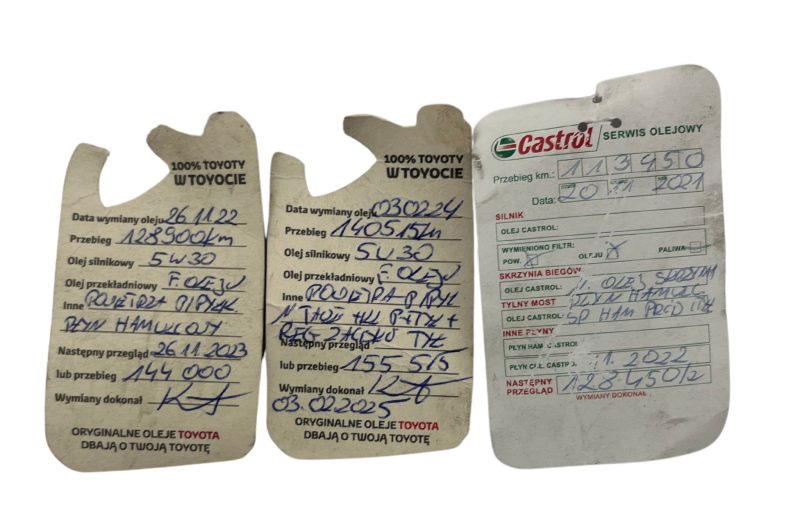 100% TOYOTY
W TOYOCIE
Data wymiany oleju 26 11 22
Przebieg 128900km
Olej silnikowy 5W30
Olej przekładniowy F. OLEJU
Inne POWIETRZA P. PYŁK.
PŁYN HAMULCOWY
Następny przegląd 26 11 2023
lub przebieg 144 000
Wymiany dokonał
ORYGINALNE OLEJE TOYOTA
DBAJĄ O TWOJĄ TOYOTĘ
100% TOYOTY
W TOYOCIE
Data wymiany oleju 03 02 24
Przebieg 140515km
Olej silnikowy 5W30
Olej przekładniowy F. OLEJU
Inne POWIETRA P. PYŁK
P+TYŁ +
REG ZACISKÓW TYŁ
Następny przegląd
lub przebieg 155 515
Wymiany dokonał
03.02.2025
ORYGINALNE OLEJE TOYOTA
DBAJĄ O TWOJĄ TOYOTĘ
Castrol SERWIS OLEJOWY
Przebieg km.: 113450
Data: 20 11 2021
SILNIK
OLEJ CASTROL:
WYMIENIONO FILTR:
POW. X OLEJU X PALIWA
SKRZYNIA BIEGÓW
OLEJ CASTROL: OLEJ
TYLNY MOST PŁYN HAMULC
OLEJ CASTROL: SP HAM PRZÓD
INNE PŁYNY
PŁYN HAM. CASTROL
PŁYN CHŁ. CASTROL 11. 2022
NASTĘPNY
PRZEGLĄD 128450
WYMIANY DOKONAŁ